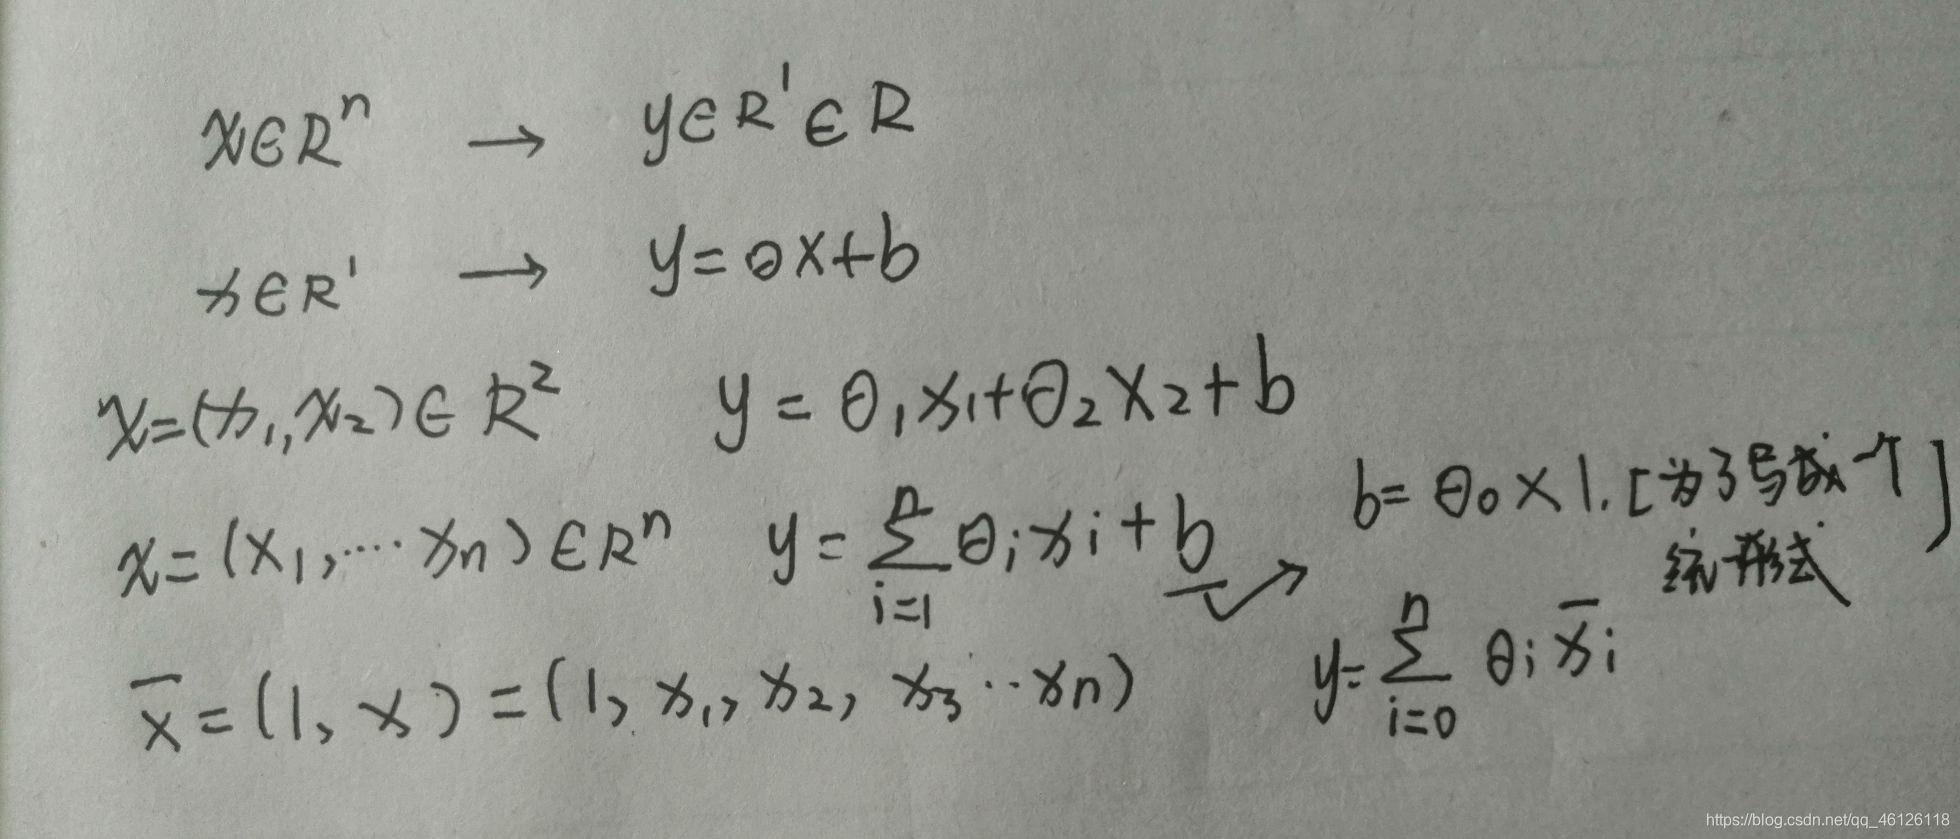 x∈Rⁿ → y∈R¹∈R
x∈R¹ → y=θx+b
x=(x₁,x₂)∈R² y=θ₁x₁+θ₂x₂+b
x=(x₁,…xₙ)∈Rⁿ y=∑ᵢ₌₁ⁿθᵢxᵢ+b
b=θ₀×1.[为了写成一个
统一形式]
x̄=(1,x)=(1,x₁,x₂,x₃…xₙ)
y=∑ᵢ₌₀ⁿ θᵢx̄ᵢ
https://blog.csdn.net/qq_46126118